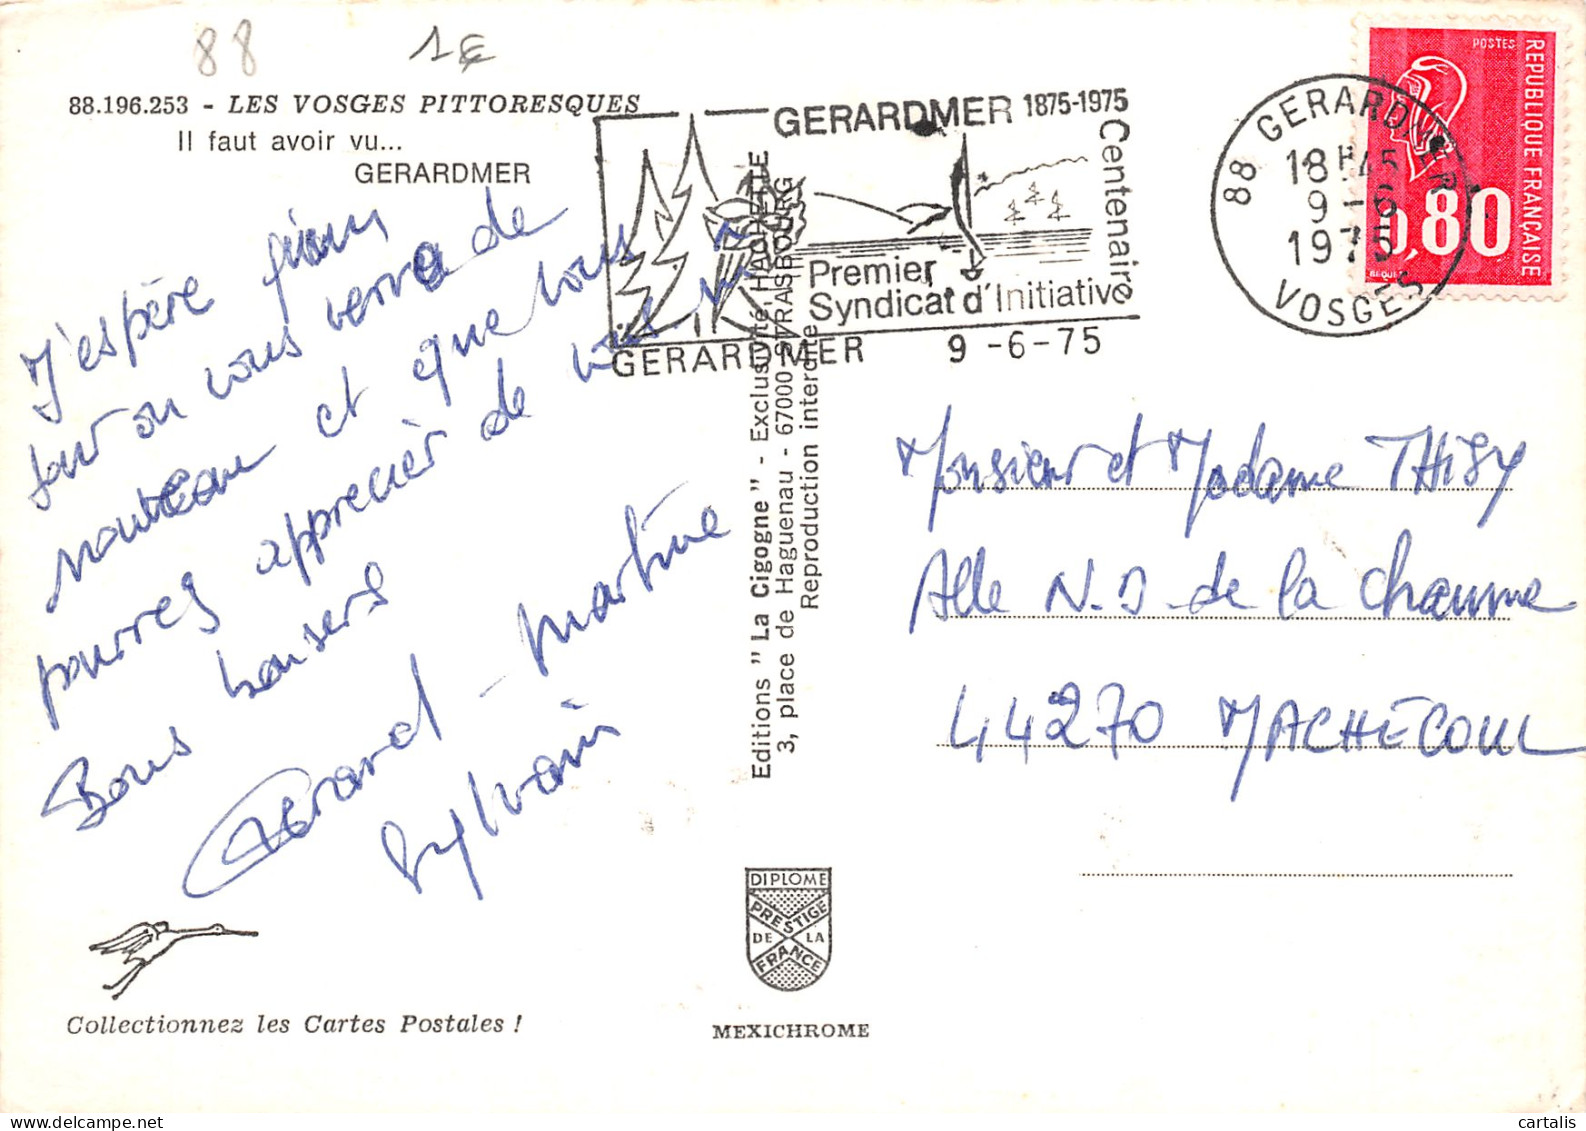 88
1€
88.196.253 - LES VOSGES PITTORESQUES
Il faut avoir vu...
GERARDMER
GERARDMER 1875-1975
Centenaire
Premier
Syndicat d'Initiative
GERARDMER 9-6-75
88 GERARDMER
18H45
9-6
1975
VOSGES
POSTES
REPUBLIQUE FRANÇAISE
0,80
J'espère
jour on vous verra de
nouveau et que tous
pourres apprecier de
Bons baisers
Gérard - Martine
Sylvain
Editions " La Cigogne " - Exclusivité HACHETTE
3, place de Haguenau - 67000 STRASBOURG
Reproduction interdite
Monsieur et Madame THISY
Alle N.D de la Chaume
44270 MACHECOUL
DIPLOME
PRESTIGE
DE LA
FRANCE
Collectionnez les Cartes Postales !
MEXICHROME
cartalis